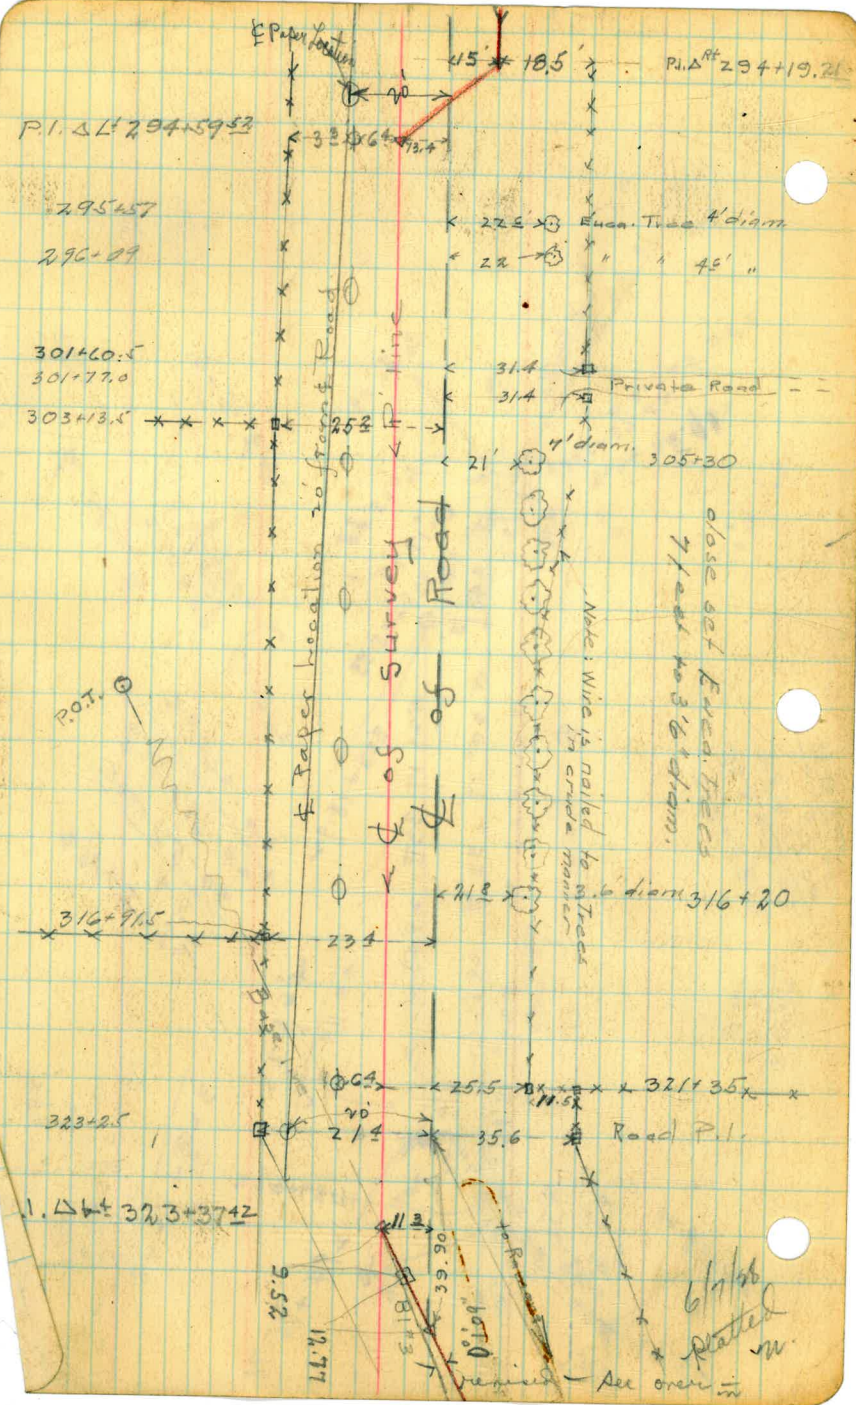 ℄ Paper Location
15' 18.5' P.I. Δ Rt 294+19.21
20'
P.I. Δ Lt 294+59 52
3 3 6 4 13.4
295+57 22 5 Euca. Tree 4' diam.
296+09 22 " " 4 5' "
301+60.5 31.4
301+77.0 31.4 Private Road
303+13.5 25 2
21' 7' diam. 305+30
℄ Paper Location 20' from ℄ Road
℄ of Survey "P" line
℄ of Road
Note: Wire is nailed to Trees
in crude manner
close set Euca. Trees
7 feet to 3'6" diam.
P.O.T.
21 8 6' diam 316+20
316+91.5
23 4
6 4 25.5 11.5 321+35
20'
323+25 21 4 35.6 Road P.I.
.I. Δ Lt 323+37 42
11 3
39.90
81 43
9.52
12.77
6/7/28
Platted
revised – See over